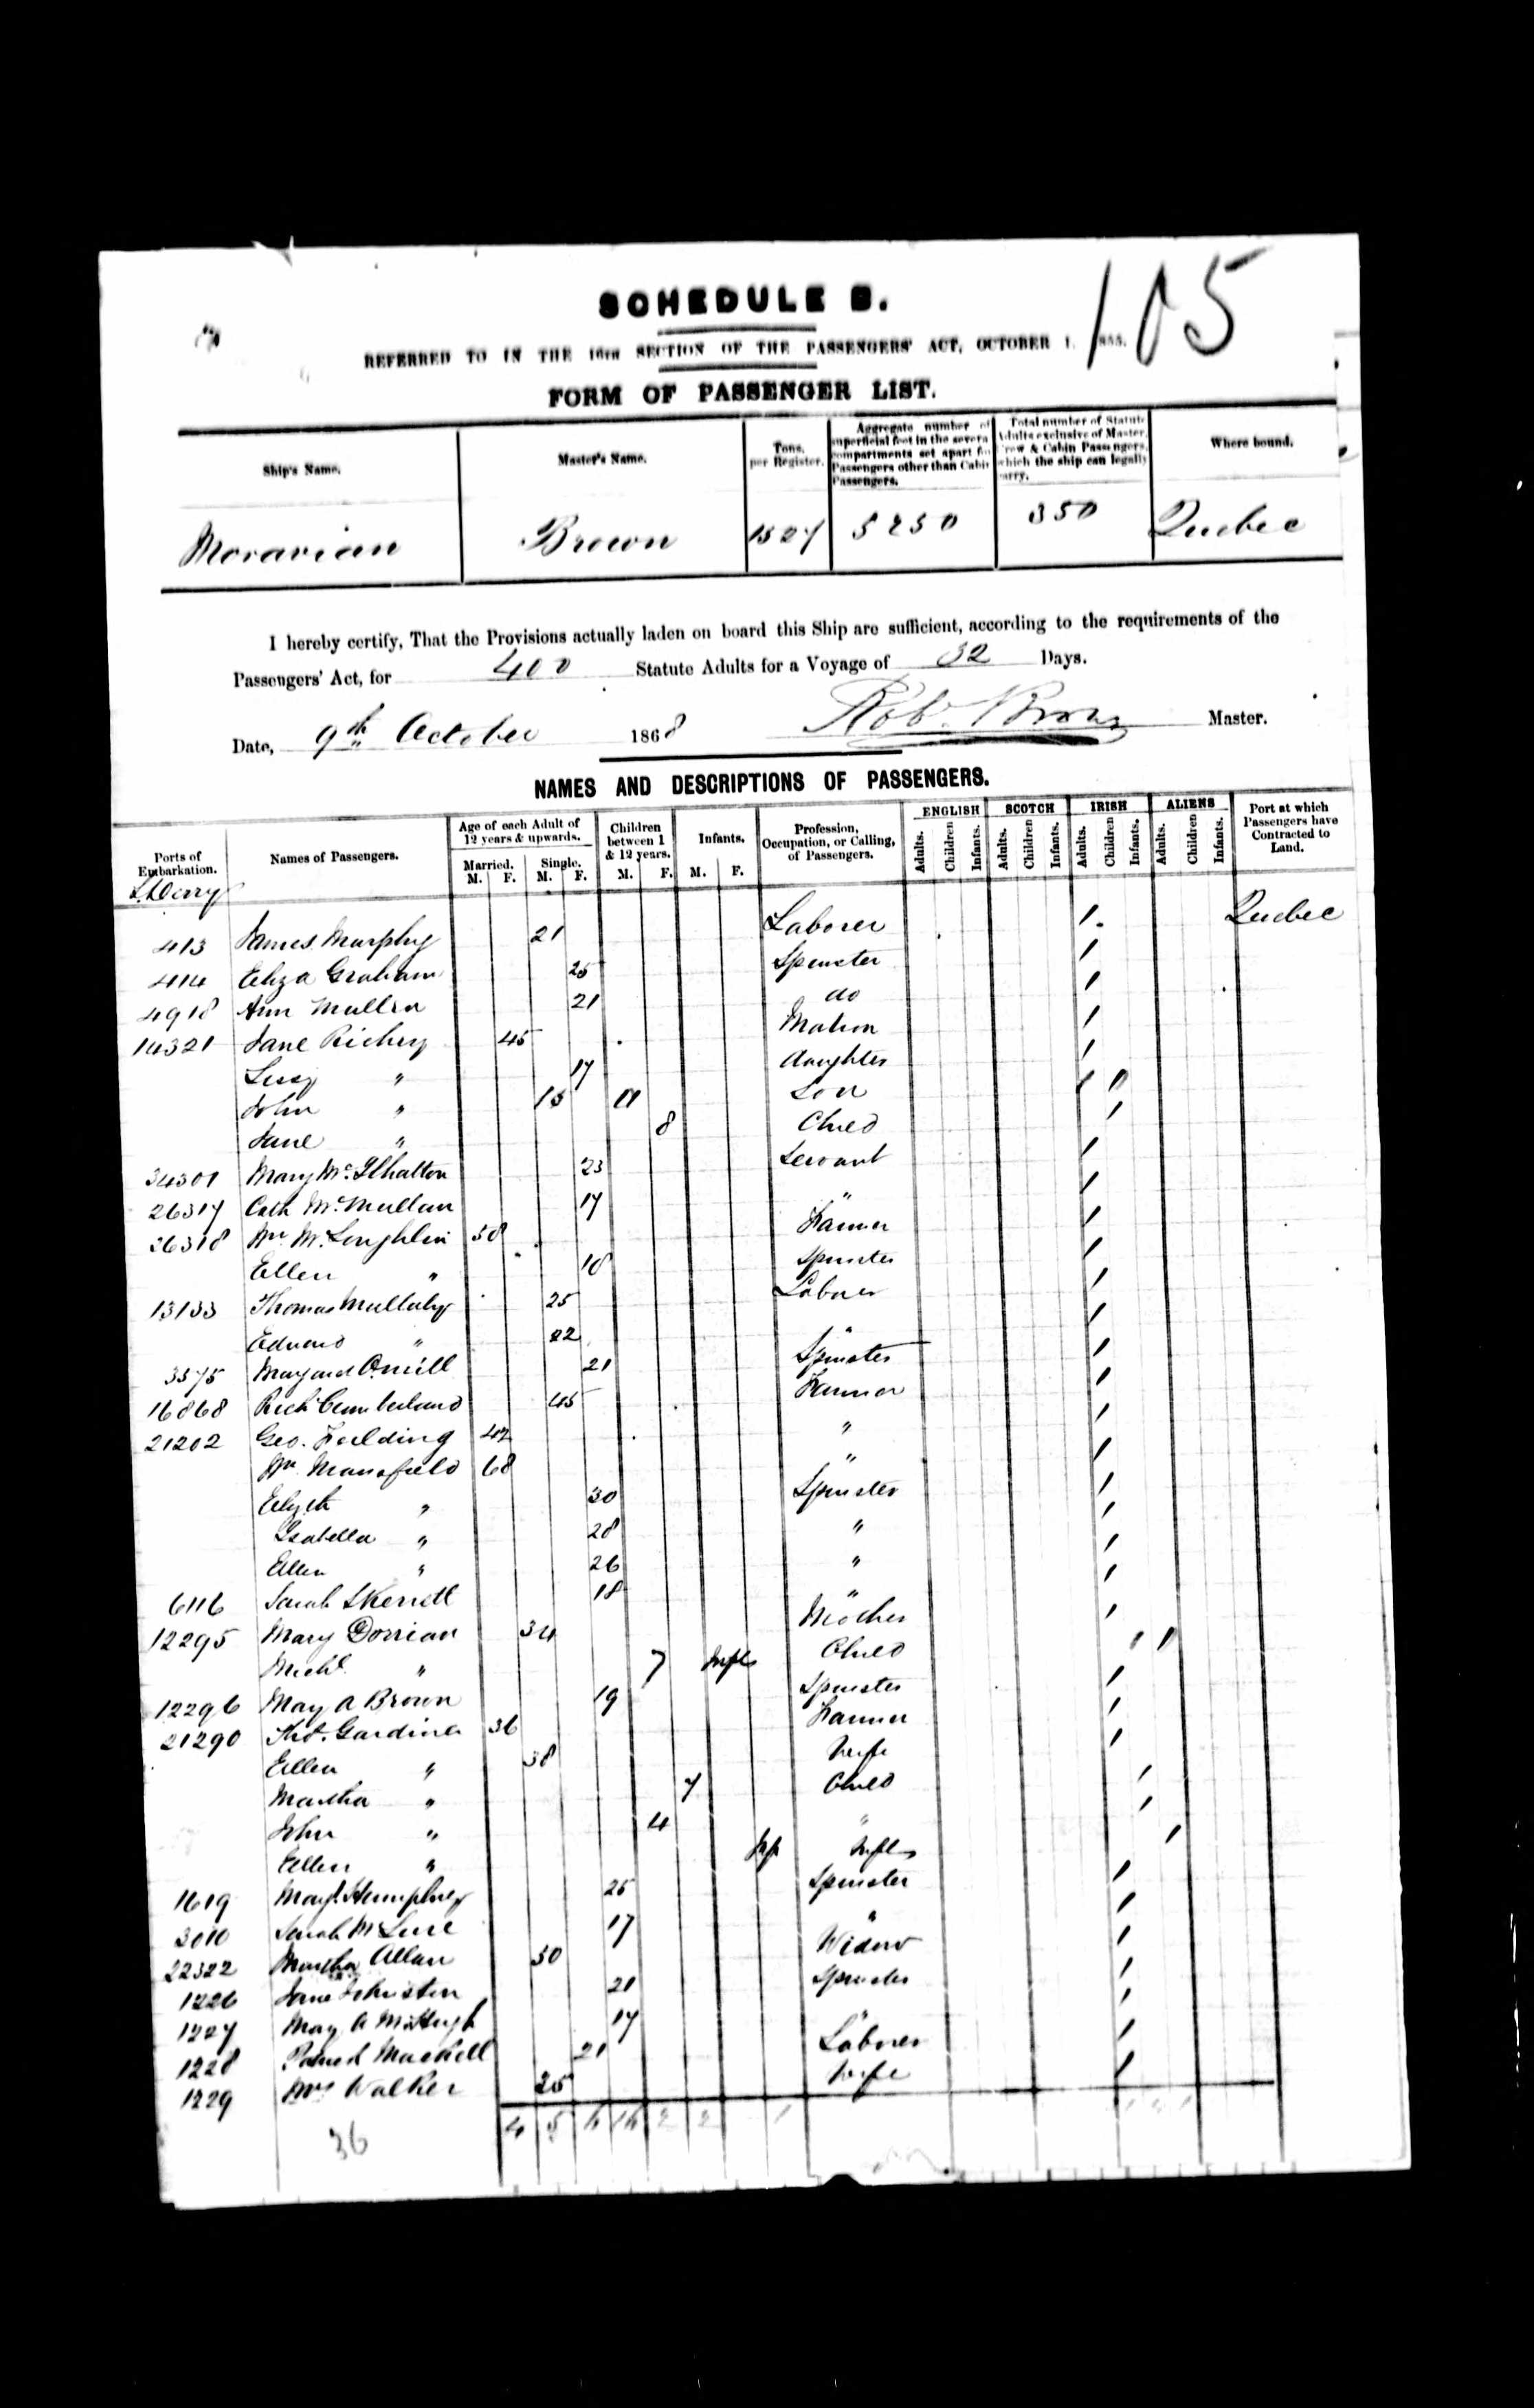 105
SCHEDULE B.
REFERRED TO IN THE 16TH SECTION OF THE PASSENGERS' ACT, OCTOBER 1, 1855.
FORM OF PASSENGER LIST.
Ship's Name. Master's Name. Tons, per Register. Aggregate number of superficial feet in the several compartments set apart for Passengers other than Cabin Passengers. Total number of Statute Adults exclusive of Master, Crew & Cabin Passengers, which the ship can legally carry. Where bound.
Moravian Brown 1527 5250 350 Quebec
I hereby certify, That the Provisions actually laden on board this Ship are sufficient, according to the requirements of the
Passengers' Act, for 400 Statute Adults for a Voyage of 32 Days.
Date, 9th October 1868 Robt Brown Master.
NAMES AND DESCRIPTIONS OF PASSENGERS.
Ports of Embarkation. Names of Passengers. Age of each Adult of 12 years & upwards. Married. M. F. Single. M. F. Children between 1 & 12 years. M. F. Infants. M. F. Profession, Occupation, or Calling, of Passengers. ENGLISH Adults. Children Infants. SCOTCH Adults. Children Infants. IRISH Adults. Children Infants. ALIENS Adults. Children Infants. Port at which Passengers have Contracted to Land.
L.Derry
413 James Murphy 21 Laborer 1 Quebec
414 Eliza Graham 25 Spinster 1
4918 Ann Mullen 21 do 1
14321 Jane Richey 45 Matron 1
Lissy " 17 daughter 1
John " 11 Son
Jane " 8 Child 1
34301 Mary 23 Servant 1
26317 Cath McMullan 17 " 1
26318 Wm McLoughlin 50 Farmer 1
Ellen " 18 Spinster 1
13133 Thomas Mullaly 25 Laborer 1
Edward " 22 " 1
3575 Margaret Oneill 21 Spinster 1
16868 Richd Cumberland 45 Farmer 1
21202 Geo. Feilding 42 " 1
Wm Mansfield 68 " 1
Elizth " 30 Spinster 1
Isabella " 28 " 1
Ellen " 26 " 1
6116 Sarah Skerrett 18 " 1
12295 Mary Dorrian 34 Mother 1
Michl " 7 Child
12296 Mary A Brown 19 Spinster 1
21290 Thos. Gardiner 36 Farmer 1
Ellen " 38 Wife 1
Martha " 7 Child 1
John " 4 " 1
Ellen " Inf Inft 1
1619 Margt Humphrey 25 Spinster 1
3010 Sarah McLure 17 " 1
22322 Martha Allan 50 Widow 1
1226 Jane Johnston 21 Spinster 1
1227 Mary A McHugh 17 " 1
1228 Patrick 21 Laborer 1
1229 Mrs Walker 25 Wife 1
36 4 5 6 16 2 2 1